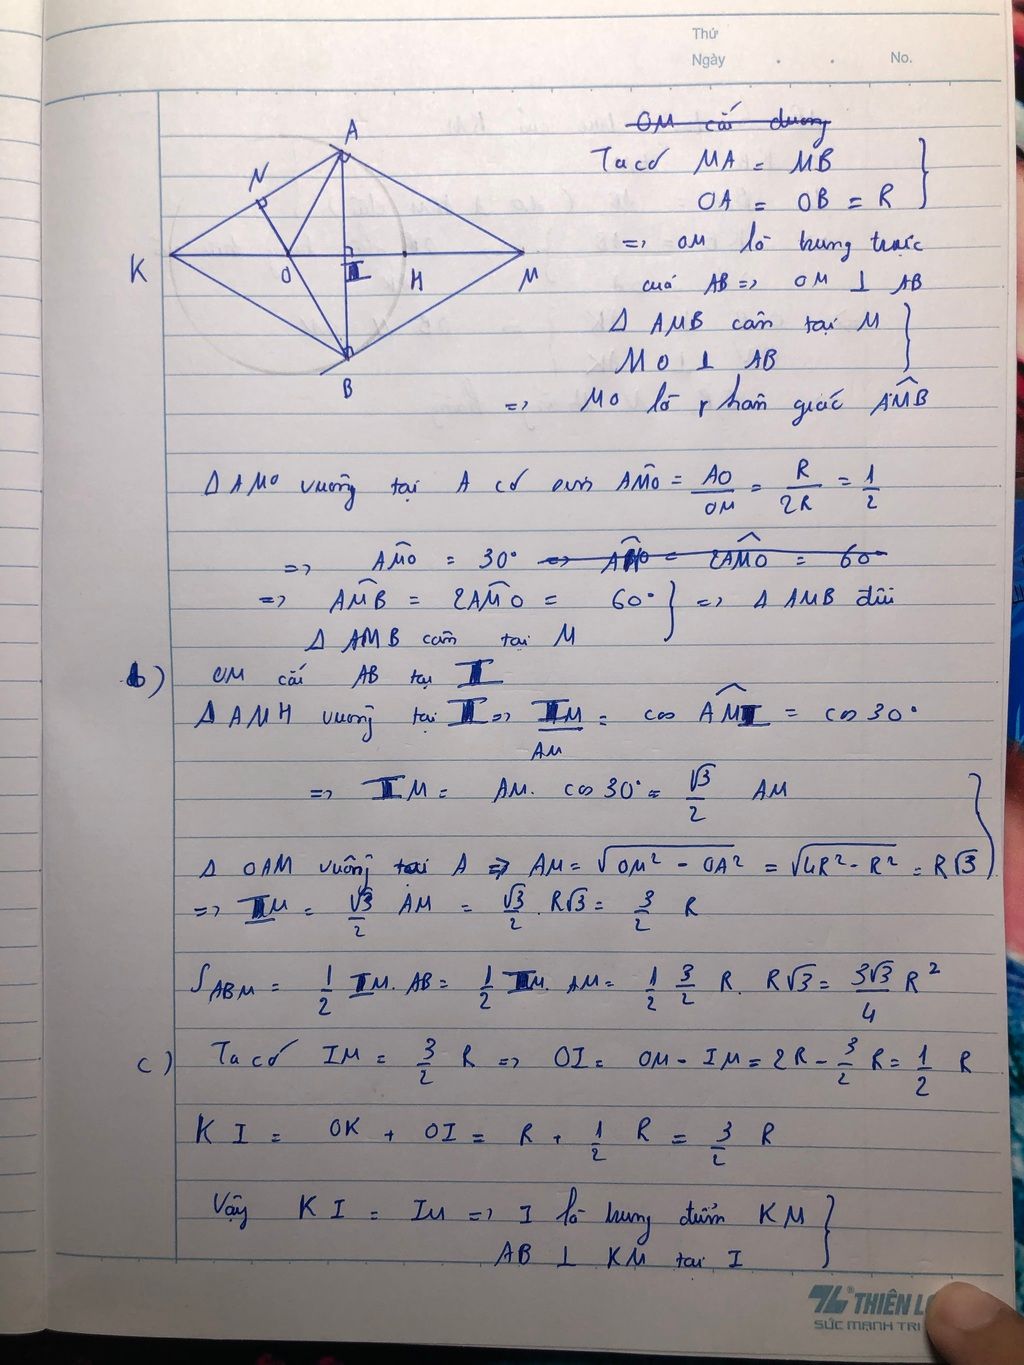 Thứ
Ngày . . No.
OM cắt đường
Ta có MA = MB
OA = OB = R
=> OM là trung trực
của AB => OM ⊥ AB
Δ AMB cân tại M
MO ⊥ AB
=> MO là phân giác AMB
A
N
K
O
I
H
M
B
Δ AMO vuông tại A có sin AMO = AO/OM = R/2R = 1/2
=> AMO = 30° => AMO = 2AMO = 60°
=> AMB = 2AMO = 60° => Δ AMB đều
Δ AMB cân tại M
b) OM cắt AB tại I
Δ AMH vuông tại I => IM/AM = cos AMI = cos 30°
=> IM = AM. cos 30° = √3/2 AM
Δ OAM vuông tại A => AM = √(OM² - OA²) = √(4R² - R²) = R√3
=> IM = √3/2 AM = √3/2 . R√3 = 3/2 R
S ABM = 1/2 IM. AB = 1/2 IM. AM = 1/2 3/2 R. R√3 = 3√3/4 R²
c) Ta có IM = 3/2 R => OI = OM - IM = 2R - 3/2 R = 1/2 R
KI = OK + OI = R + 1/2 R = 3/2 R
Vậy KI = IM => I là trung điểm KM
AB ⊥ KM tại I
THIÊN LO
SỨC MẠNH TRI